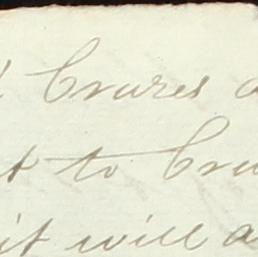 Crures
to Cru
it will a